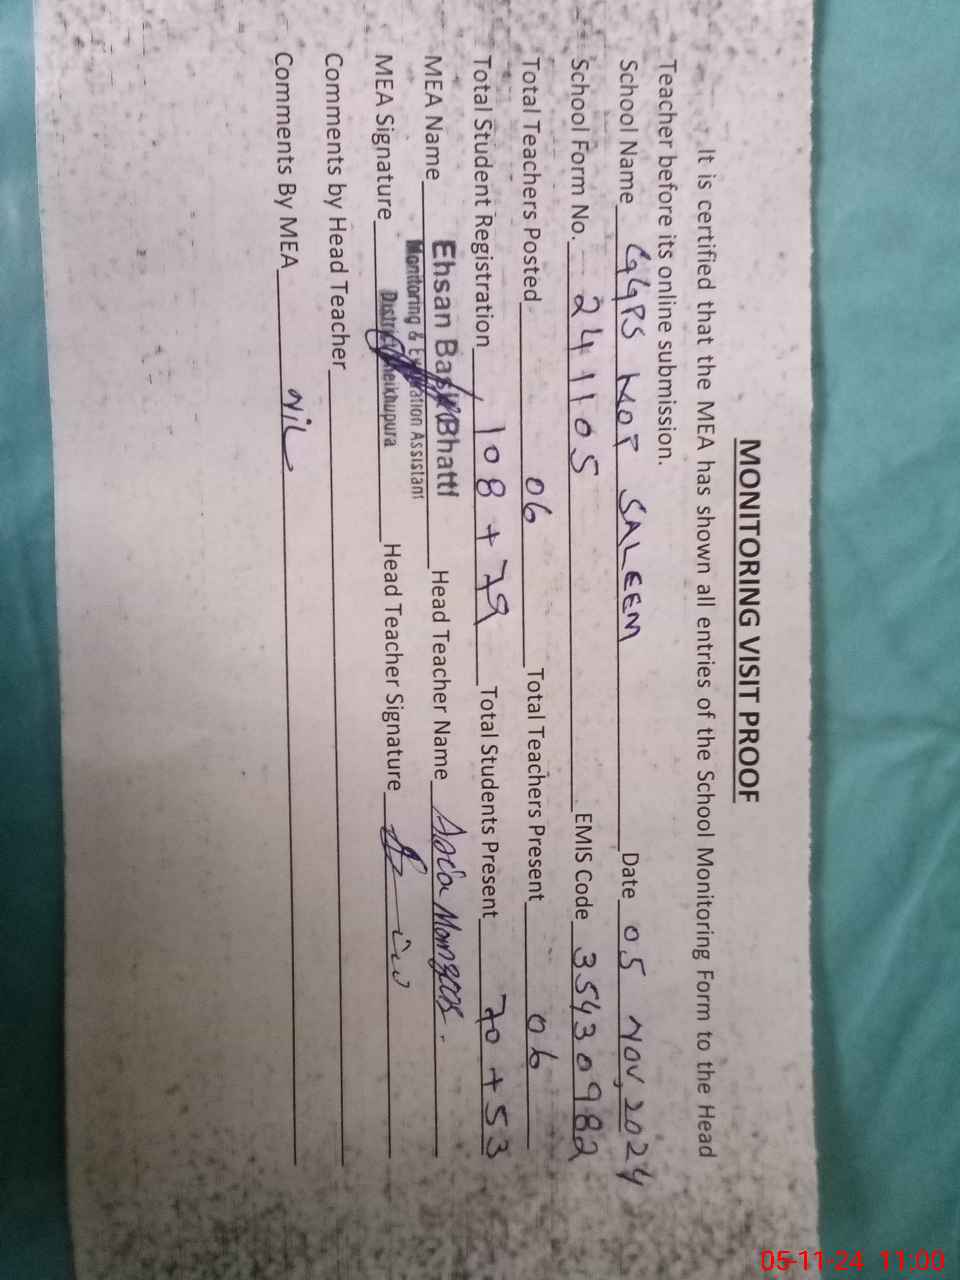 MONITORING VISIT PROOF
It is certified that the MEA has shown all entries of the School Monitoring Form to the Head
Teacher before its online submission.
School Name GGPS KOT SALEEM Date 05 NOV, 2024
School Form No. 241105 EMIS Code 35430982
Total Teachers Posted 06 Total Teachers Present 06
Total Student Registration 108 + 79 Total Students Present 70 + 53
MEA Name Ehsan Basir Bhatti Head Teacher Name Asia Manzoor.
Monitoring & Evaluation Assistant
MEA Signature District Sheikhupura Head Teacher Signature
Comments by Head Teacher
Comments By MEA NiL
05-11-24 11:00